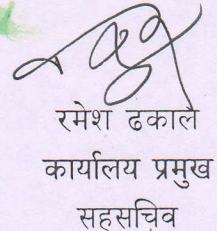 रमेश ढकाल
कार्यालय प्रमुख
सहसचिव